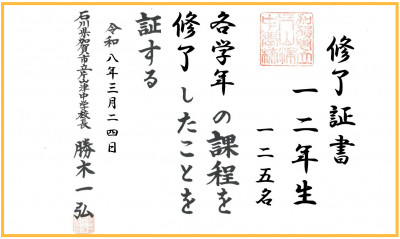 修了証書
一二年生
一二五名
各学年の課程を
修了したことを
証する
令和八年三月二四日
石川県加賀市立片山津中学校長
勝木一弘